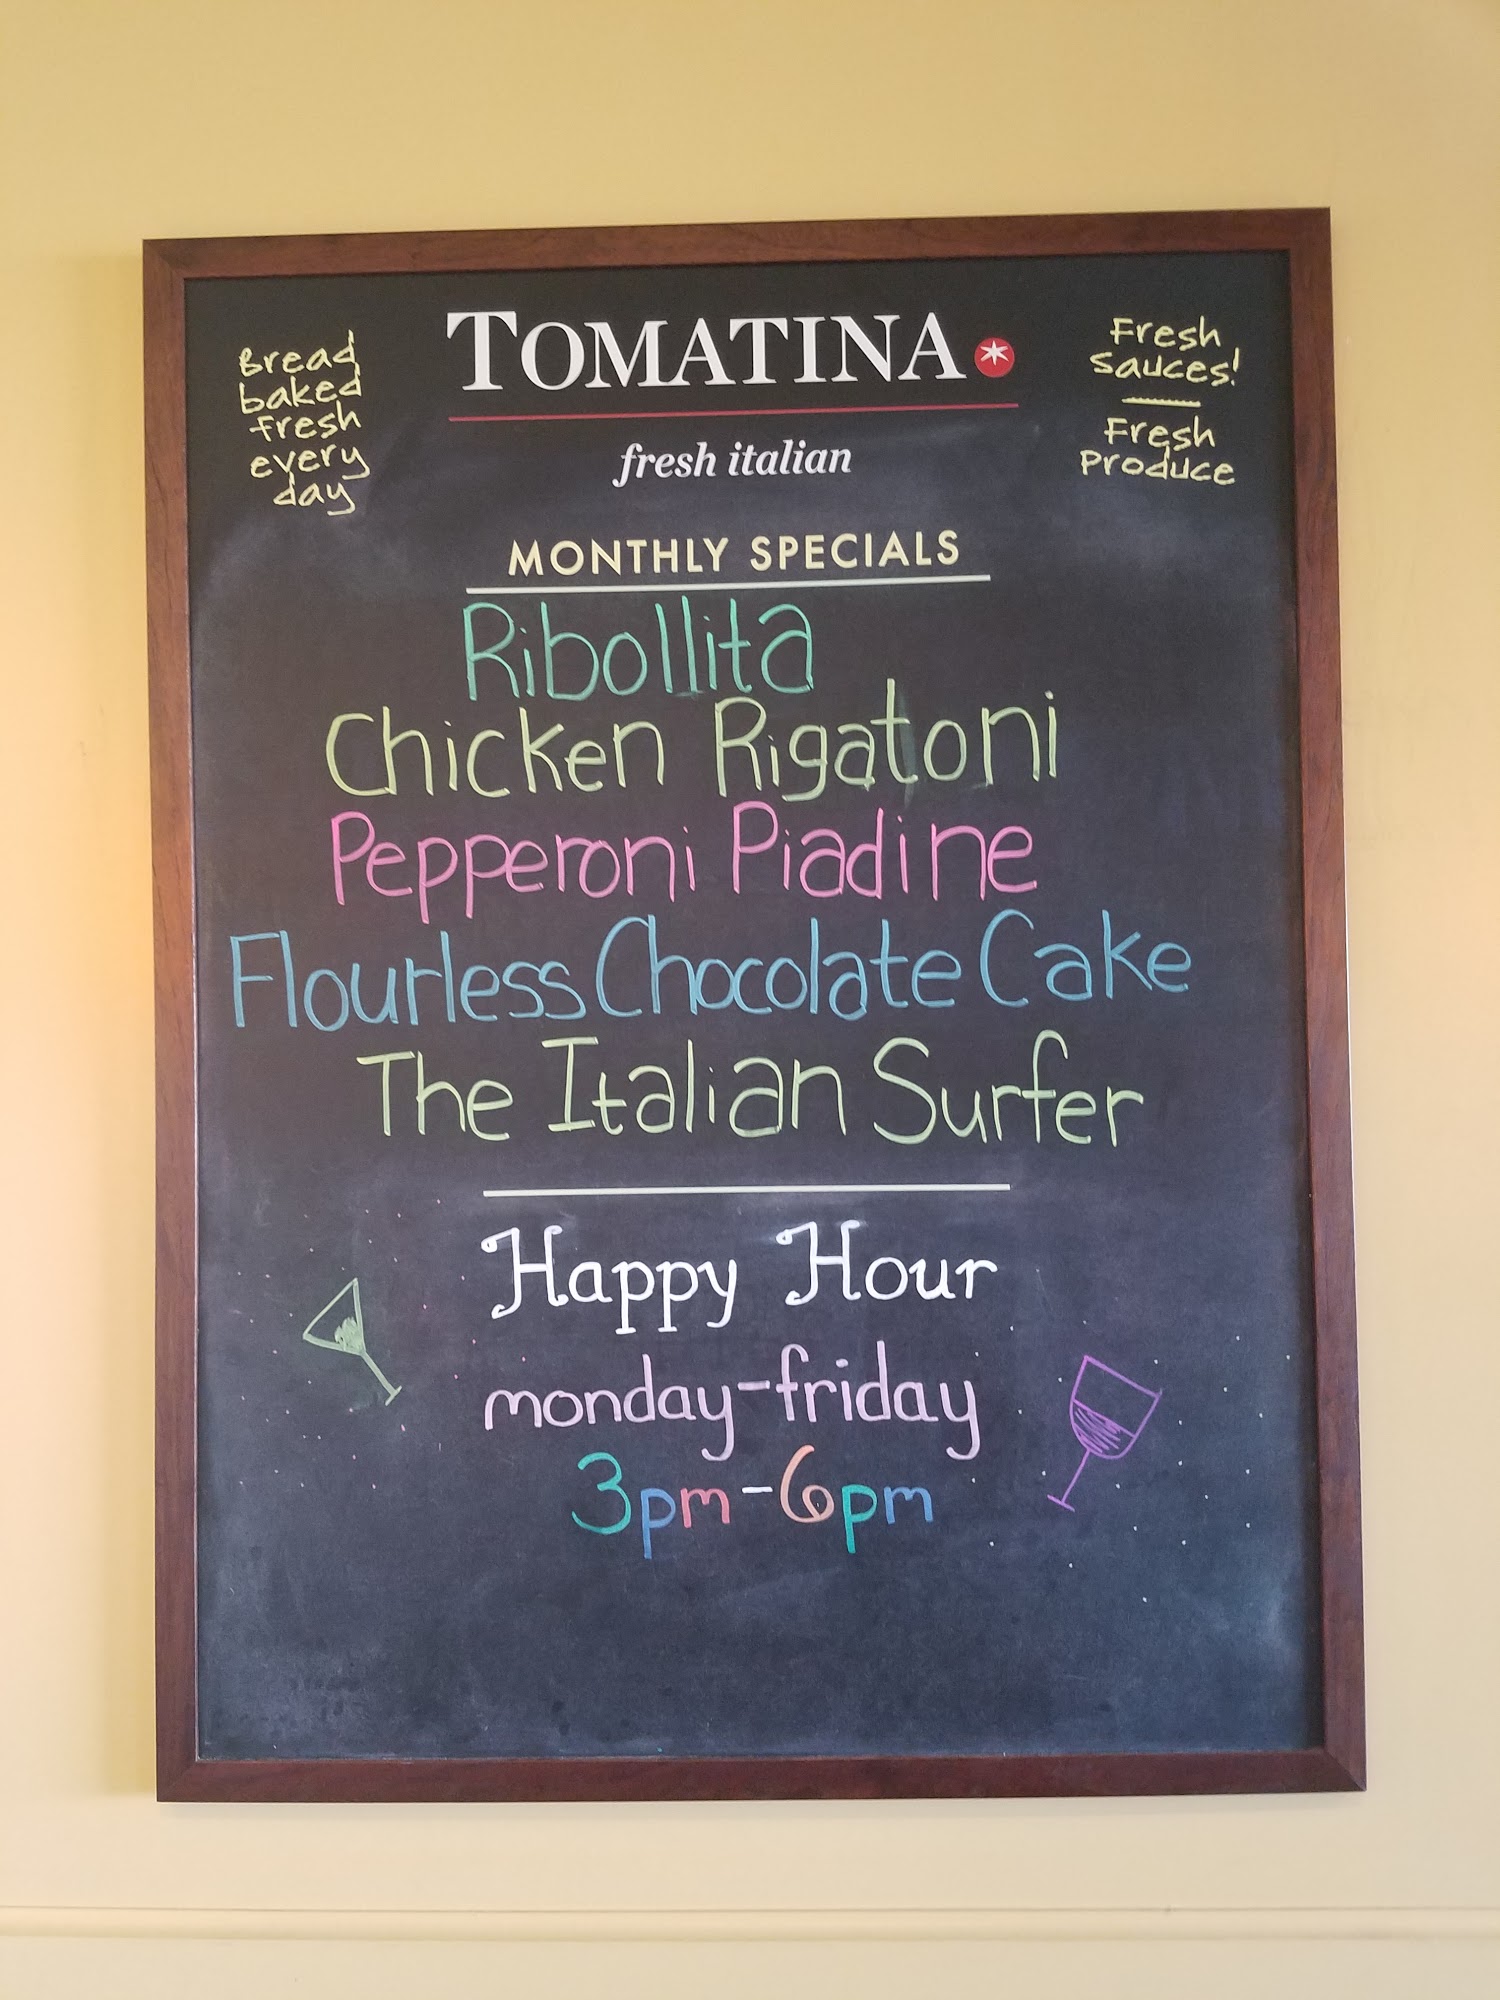 TOMATINA
fresh italian
Bread
baked
fresh
every
day
Fresh
Sauces!
Fresh
Produce
MONTHLY SPECIALS
Ribollita
Chicken Rigatoni
Pepperoni Piadine
Flourless Chocolate Cake
The Italian Surfer
Happy Hour
monday-friday
3pm-6pm